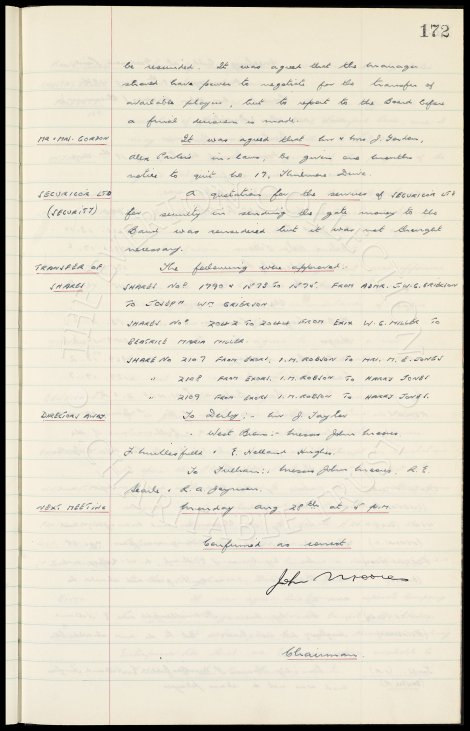 172
be rescinded. It was agreed that the manager
should have power to negotiate for the transfer of
available players, but to report to the Board before
a final decision is made.
MR & MRS. GORDON It was agreed that Mr & Mrs J. Gordon,
Alex Parker's in-laws, be given one months
notice to quit No. 17, Thirlmere Drive.
SECURICOR LTD A quotation for the services of SECURICOR LTD
(SECURITY) for security in sending the gate money to the
Bank was considered but it was not thought
necessary.
TRANSFER OF The following were approved:
SHARES SHARES NOS. 1790 & 1873 TO 1875. FROM ADMR. J.W.G. GRIERSON
TO JOSEPH WM GRIERSON
SHARES NOS. TO FROM ERIK W. G. MILLER TO
BEATRICE MARIA MILLER
SHARE NO 2107 FROM EXORS. I.M. ROBSON TO MRS. M. E. JONES
" 2108 FROM EXORS. I.M. ROBSON TO HARRY JONES
" 2109 FROM EXORS I.M. ROBSON TO HARRY JONES.
DIRECTORS AWAY. To Derby:- Mr J. Taylor
West Brom:- Messrs John Moores
F Micklesfield & E Holland Hughes.
To Fulham:- Messrs John Moores, R.E
Searle & R.A. Joynson.
NEXT MEETING Monday Aug 28th at 5 P.M.
Confirmed as correct.
John Moores
Chairman.
THE EVERTON COLLECTION
CHARITABLE TRUST